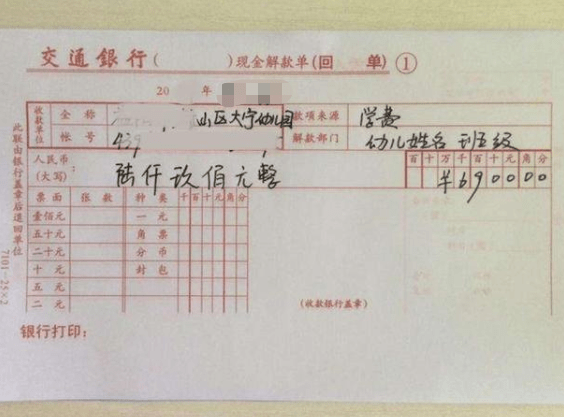 交通銀行( )现金解款单(回 单) ①
20 年
收款单位 全称 山区大宁幼儿园 款项来源 学费
帐号 439 解款部门 幼儿姓名 班级
人民币(大写) 陆仟玖佰元整 百十万千百十元角分
¥690000
票面 张数 种类 千百十元角分
壹佰元 一元
五十元 角票
二十元 分币
十元 封包
五元
二元 (收款银行盖章)
银行打印:
此联由银行盖章后退回单位
7101-25×2